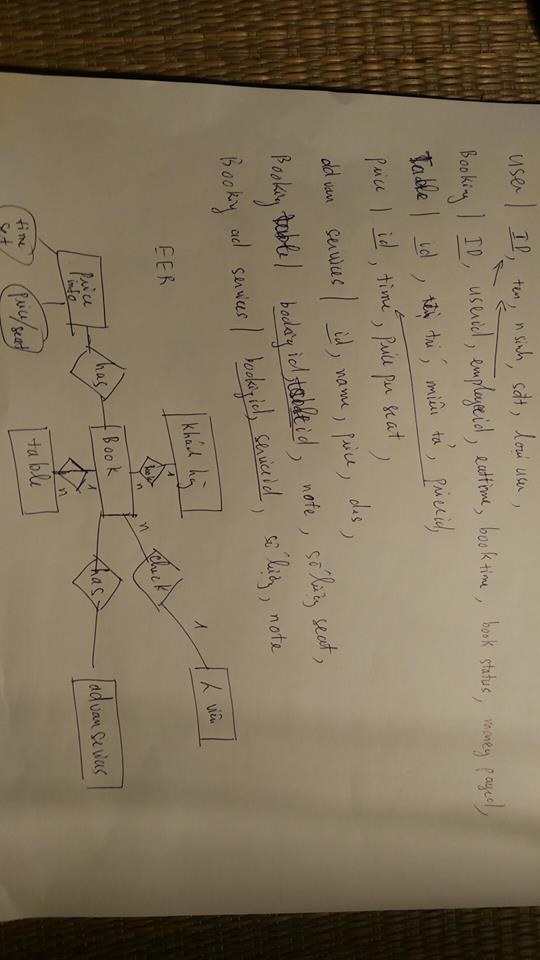 user | ID, ten, n sinh, sdt, loại user,
Booking | ID, userid, employeeid, eattime, book time, book status, money payed,
Table | id, trí, miêu tả, priceid,
price | id, time, price per seat,
advan services | id, name, price, des,
Booking table | bookingid, tableid, note, số lượng seat,
Booking ad services | bookingid, serviceid, số lượng, note
Khách hàng
1
viên
EER
book
check
1
n
n
price info
has
Book
has
advan sevices
1
n
time set
price/seat
table